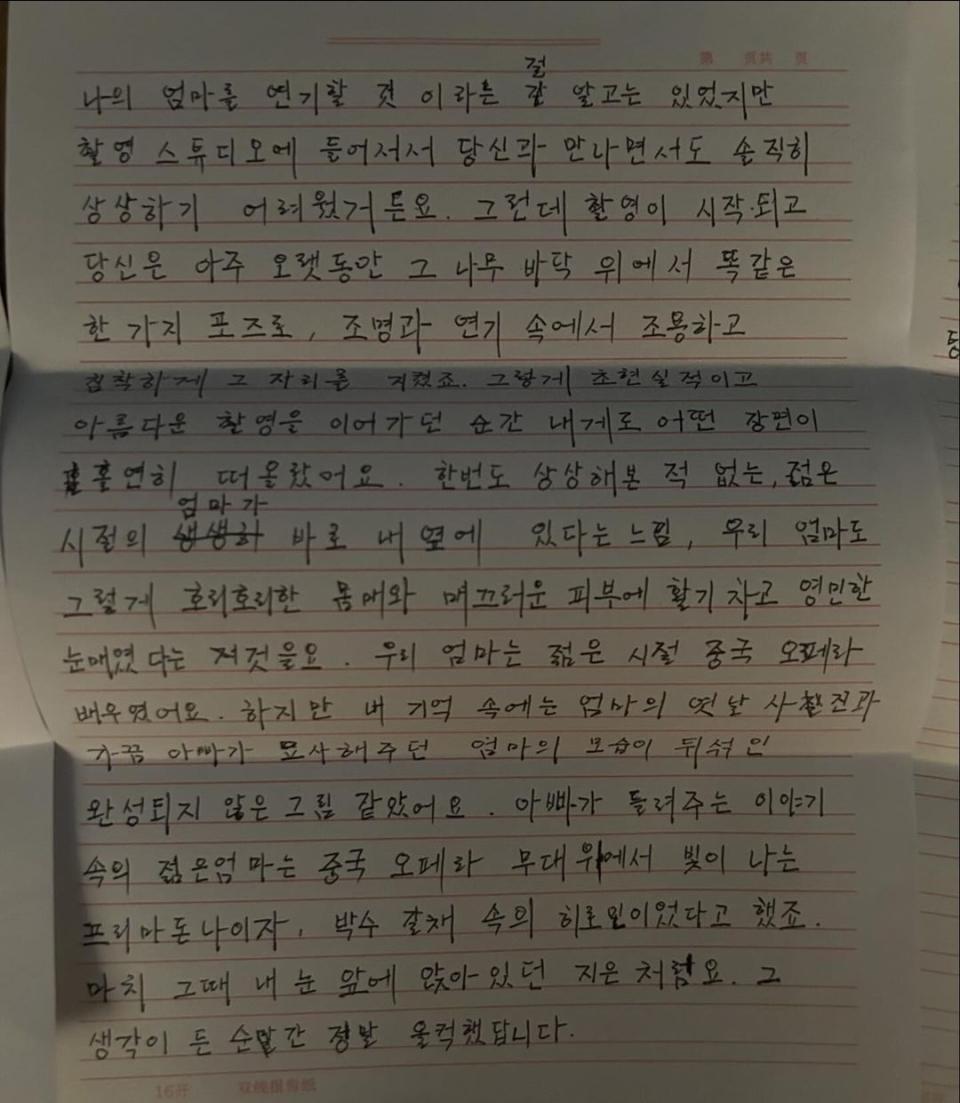 第 页共 页
절
나의 엄마를 연기할 것 이라는 잘 알고는 있었지만
촬영 스튜디오에 들어서서 당신과 만나면서도 솔직히
상상하기 어려웠거든요. 그런데 촬영이 시작되고
당신은 아주 오랫동안 그 나무 바닥 위에서 똑같은
한 가지 포즈로, 조명과 연기 속에서 조용하고
침착하게 그 자리를 지켰죠. 그렇게 초현실적이고
아름다운 촬영을 이어가던 순간 내게도 어떤 장면이
홀연히 떠올랐어요. 한번도 상상해본 적 없는, 젊은
엄마가
시절의 생생히 바로 내 옆에 있다는 느낌, 우리 엄마도
그렇게 호리호리한 몸매와 매끄러운 피부에 활기차고 영민한
눈매였다는 저것을요. 우리 엄마는 젊은 시절 중국 오페라
배우였어요. 하지만 내 기억 속에는 엄마의 옛날 사진과
가끔 아빠가 묘사해주던 엄마의 모습이 뒤섞인
완성되지 않은 그림 같았어요. 아빠가 들려주는 이야기
속의 젊은엄마는 중국 오페라 무대위에서 빛이 나는
프리마돈나이자, 박수 갈채 속의 히로인이었다고 했죠.
마치 그때 내 눈 앞에 앉아있던 지은처럼요. 그
생각이 든 순간 정말 울컥했답니다.
16开 双线报告纸